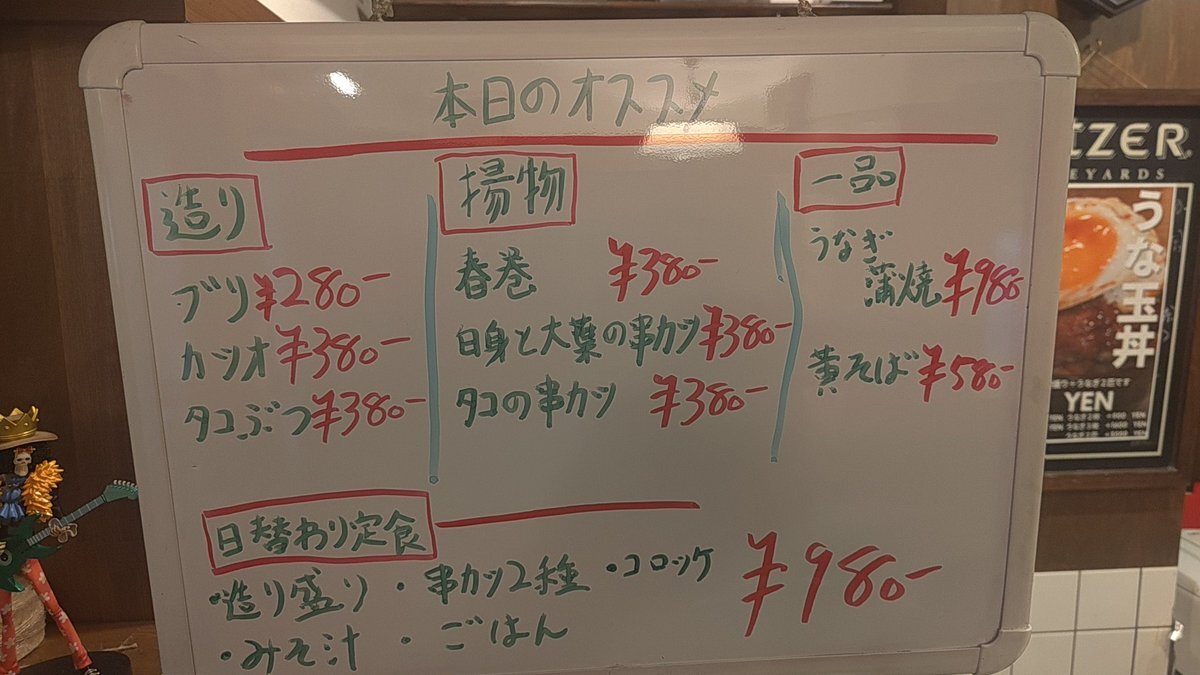 本日のオススメ
造り
ブリ ¥280-
カツオ ¥380-
タコぶつ ¥380-
揚物
春巻 ¥380-
白身と大葉の串カツ ¥380-
タコの串カツ ¥380-
一品
うなぎ
蒲焼 ¥980
黄そば ¥580-
日替わり定食
・造り盛り ・串カツ2種 ・コロッケ
・みそ汁 ・ごはん
¥980-
TZER
EYARDS
うな玉丼
YEN